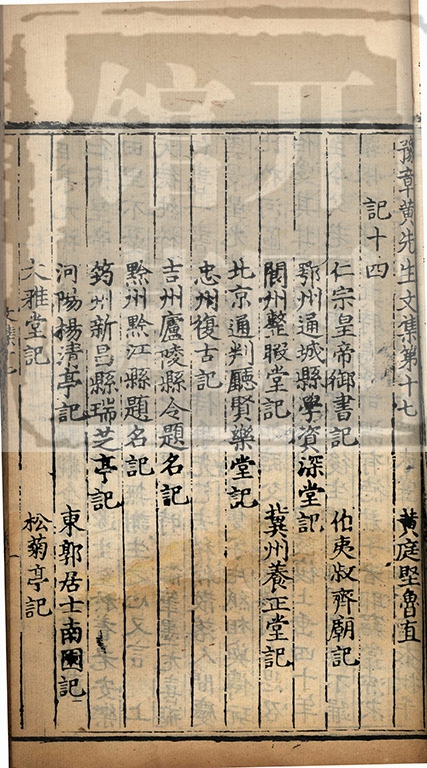 豫章黃先生文集第十七 黃庭堅魯直
記十四
仁宗皇帝御書記 伯夷叔齊廟記
鄂州通城縣學資深堂記
閬州整暇堂記 冀州養正堂記
北京通判廳賢樂堂記
忠州復古記
吉州廬陵縣令題名記
黔州黔江縣題名記
筠州新昌縣瑞芝亭記
河陽揚清亭記 東郭居士南園記
大雅堂記 松菊亭記